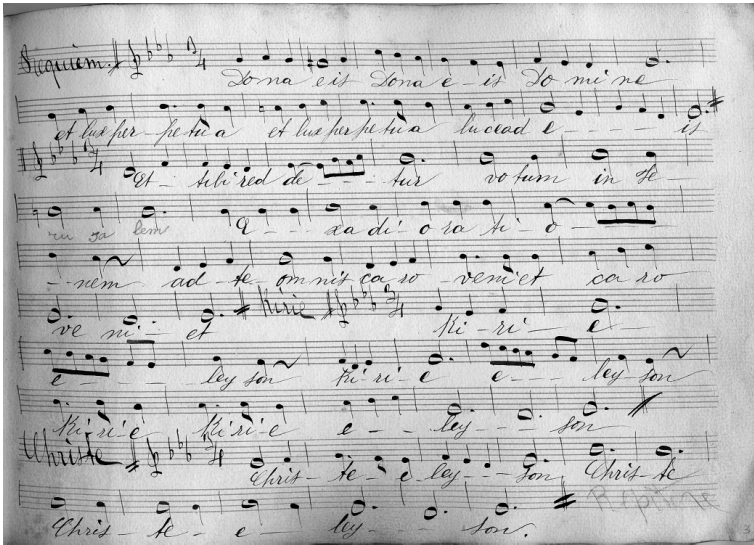 Requiem. 3/4 Dona eis Dona e-is Do mi ne
et lux per-pe tu a et lux per pe tu a lu cead e - - - - is
3/4 Et - tibi red de - - - - tur vo tum in Je-
ru sa lem E - - - xa di - o ra ti - o -
- - nem ad - te om nis ca ro - veni et ca ro
ve ni - et Kirie 3/4 Ki - ri - e -
e - - - - ley son Ki - ri - e e - - - ley - son
Ki - ri - e Ki - ri - e e - - ley - - son
Christe 3/4 Chris - te - e - ley - - - son Chris - te
Chris - te - e - ley - - - son.
3